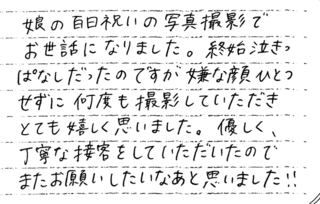 娘の百日祝いの写真撮影で
お世話になりました。終始泣きっ
ぱなしだったのですが嫌な顔ひとつ
せずに何度も撮影していただき
とても嬉しく思いました。優しく、
丁寧な接客をしていただいたので
またお願いしたいなあと思いました!!